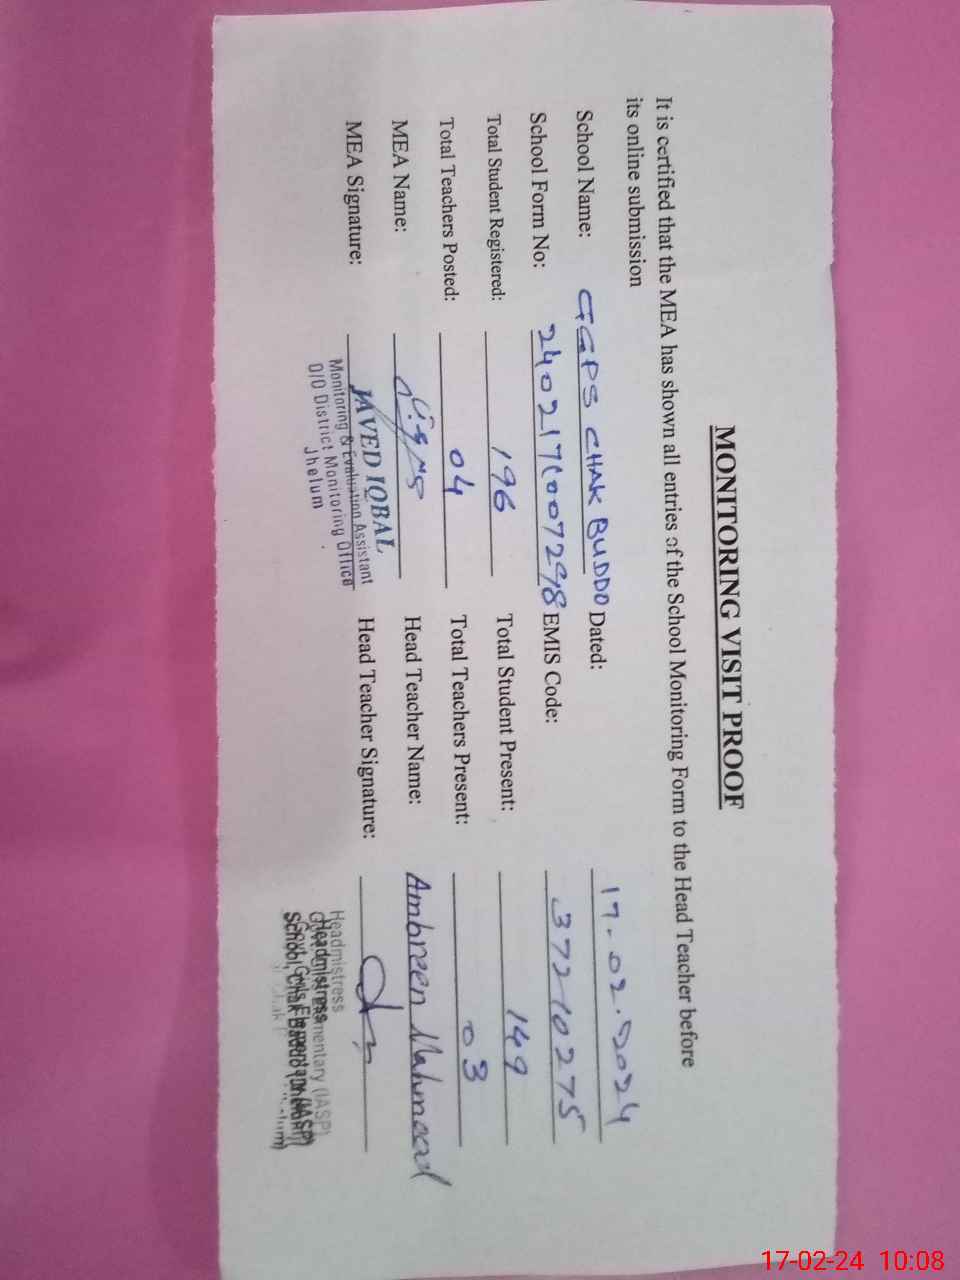 MONITORING VISIT PROOF
It is certified that the MEA has shown all entries of the School Monitoring Form to the Head Teacher before
its online submission
School Name: GGPS CHAK BUDDO Dated: 17.02.2024
School Form No: 2402171007298 EMIS Code: 37210275
Total Student Registered: 196 Total Student Present: 149
Total Teachers Posted: 04 Total Teachers Present: 03
MEA Name: Head Teacher Name: Ambreen Mahmood
MEA Signature: Head Teacher Signature:
JAVED IQBAL
Monitoring & Evaluation Assistant
O/O District Monitoring Office
Jhelum
Headmistress
Headmistress
School, Chak
17-02-24 10:08